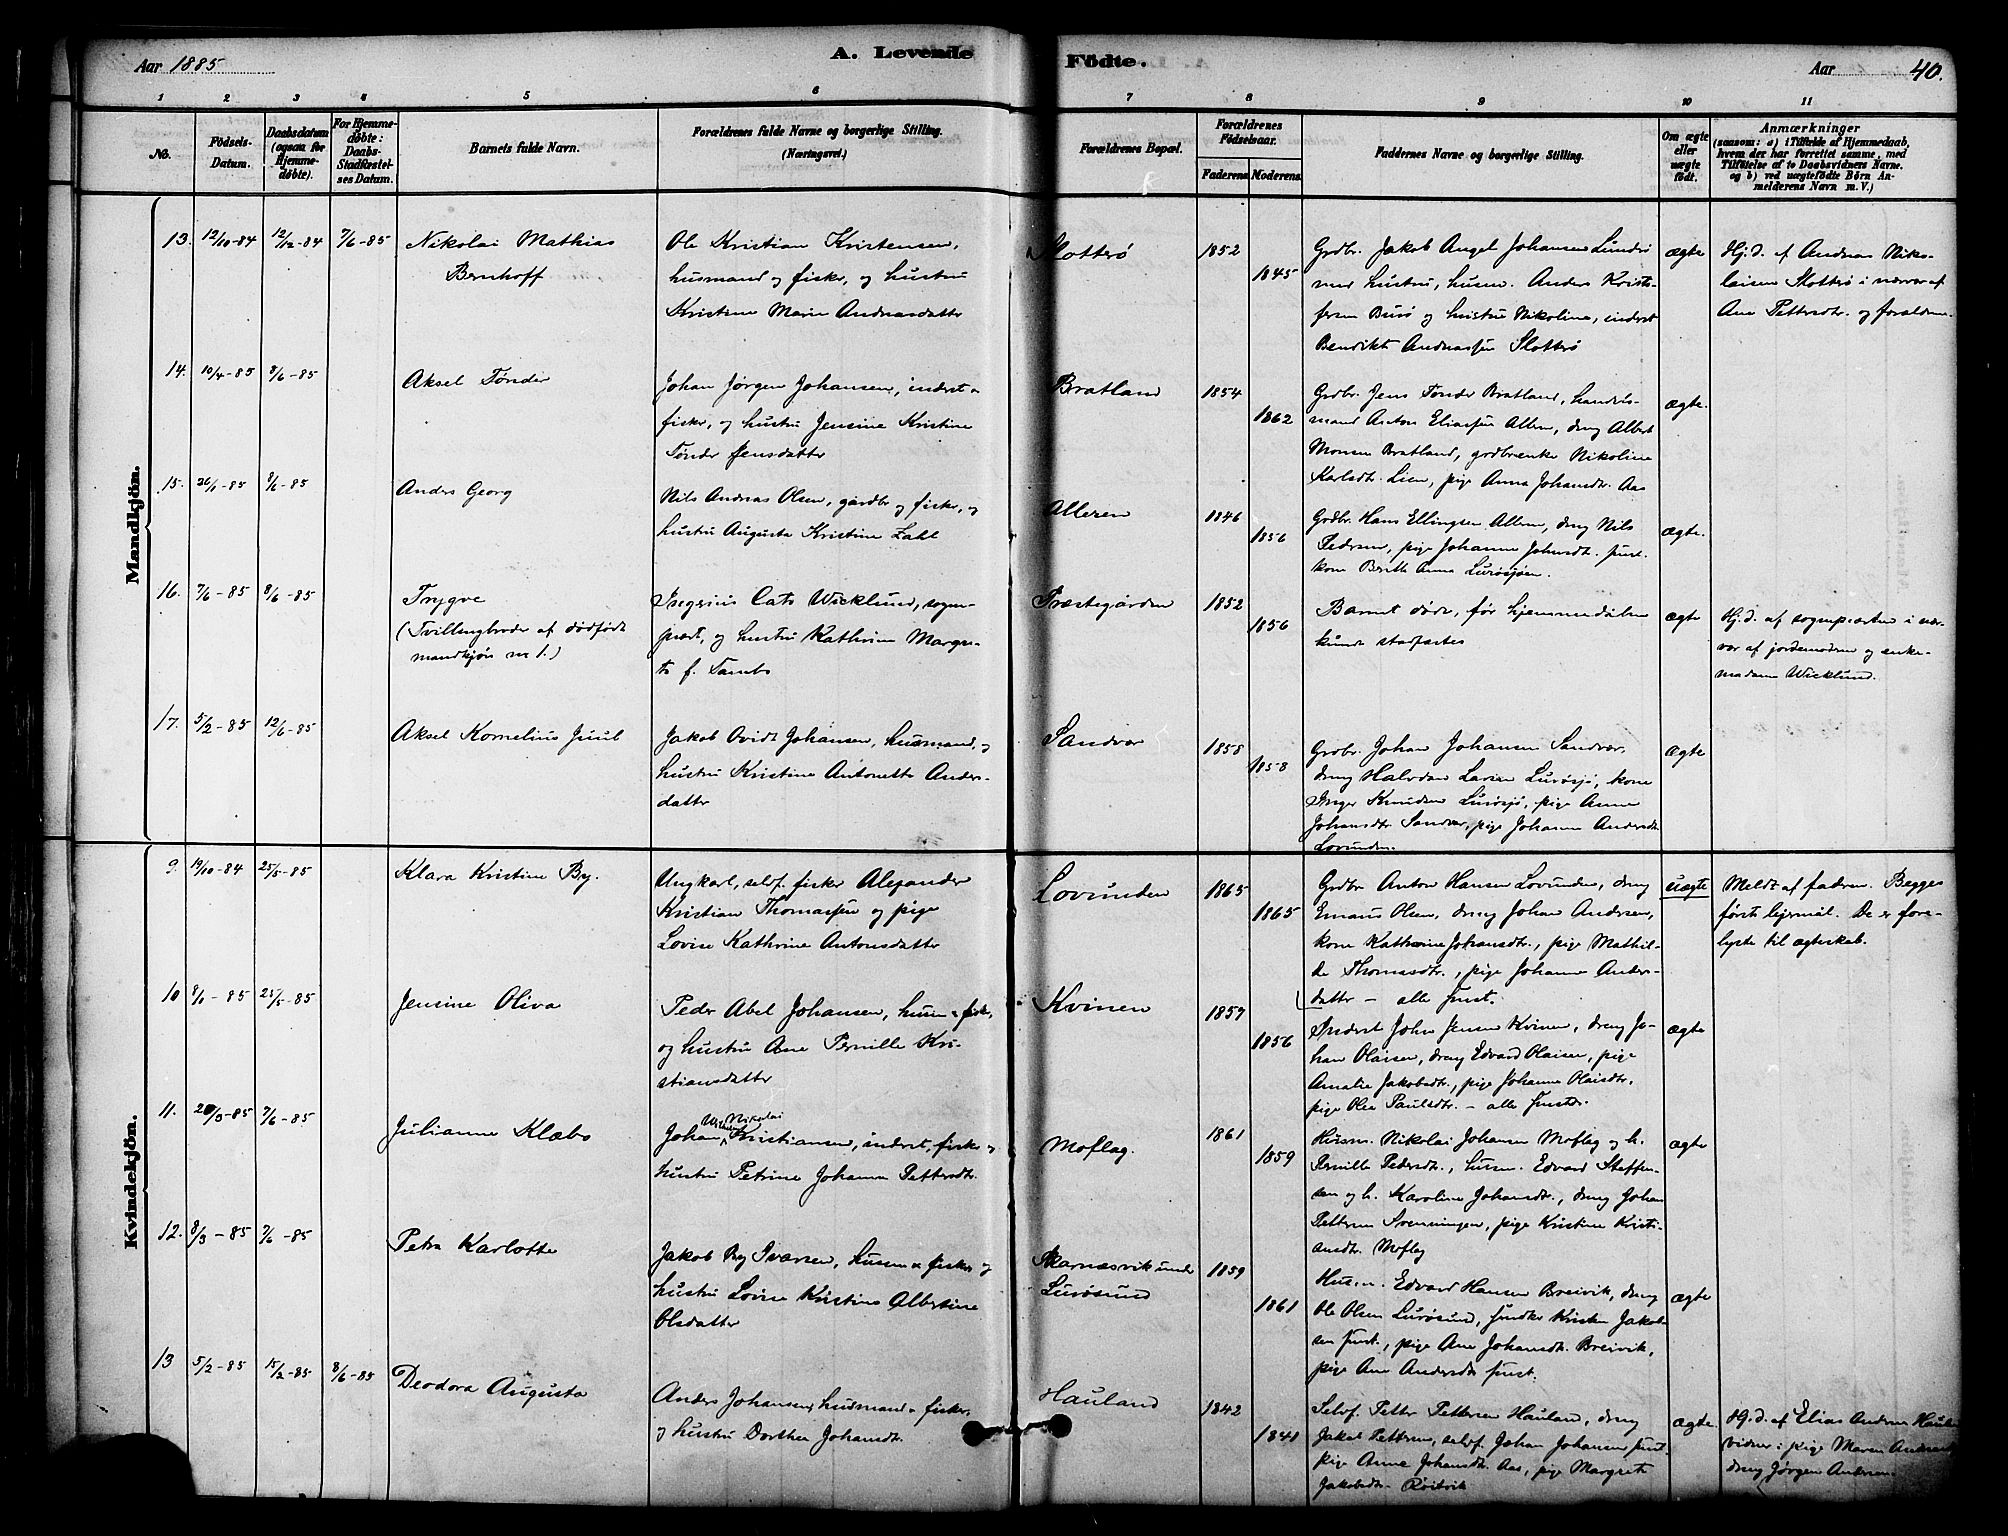 Aar 1885
A. Levende
Födte.
Aar
40.
1 2 3 4 5 6 7 8 9 10 11
No.
Födsels-
Datum.
Daabsdatum
(ogsaa for
Hjemme-
døbte).
For Hjemme-
døbte:
Daabs-
Stadfæstel-
ses Datum.
Barnets fulde Navn.
Forældrenes fulde Navne og borgerlige Stilling.
(Næringsvei.)
Forældrenes Bopæl.
Forældrenes
Födselsaar.
Faderens. Moderens.
Faddernes Navne og borgerlige Stilling.
Om ægte
eller
uægte
födt.
Anmærkninger
(saasom: a) i Tilfælde af Hjemmedaab,
hvem der har forrettet samme, med
Tilföielse af to Daabsvidners Navne.
og b) ved uægtefödte Börn An-
melderens Navn m. V.)
Mandkjön.
13. 12/10-84 12/12-84 7/6-85
Nikolai Mathias
Bernhoff
Ole Kristian Kristensen,
husmand og fisker, og hustru
Kristine Marie Andreasdatter
Slotterø
1852
1845
Grdbr. Jakob Angel Johansen Lundrø
med hustru, husm. Anders Kristo-
fersen Burø og hustru Nikolina, inderst
Bendikt Andreassen Slotterø
ægte
Hj.d. af Andreas Niko-
laisen Slotterø i nærvær af
Ane Pettersdtr. og forældrene.
14. 10/4-85 8/6-85
Aksel Tønder
Johan Jørgen Johansen, inderst &
fisker, og hustru Jensine Kristine
Tønder Jensdatter
Bratland
1854
1862
Grdbr. Jens Tønder Bratland, handels-
mand Anton Eliassen Alleren, dreng Albert
Monsen Bratland, grdbrenke Nikoline
Karlsdt. Lien, pige Anna Johansdtr. Aas
ægte.
15. 26/1-85 8/6-85
Anders Georg
Nils Andreas Olsen, gårdbr og fisker, og
hustru Augusta Kristine Zahl
Alleren
1846
1856
Grdbr. Hans Ellingsen Alleren, dreng Nils
Pedersen, pige Johanne Johnsdt. smst.
kone Berith Anna Lurøsjøen.
ægte.
16. 7/6-85 8/6-85
Trygve
(Tvillingbroder af dødfødt
mandkjøn nr 1.)
Cato Wicklund, sogne-
præst, og hustru Kathrine Margre-
te f. Tambs
Præstegården
1852
1856
Barnet døde, før hjemmedåben
kunde stadfæstes
ægte
Hj.d. af sognepræsten i nær-
vær af jordemoderen og enke-
madame Wicklund.
17. 5/2-85 12/6-85
Aksel Kornelius Juul
Jakob Ovidt Johansen, husmand, og
hustru Kristine Antonette Anders-
datter
Sandvær
1858
1858
Grdbr. Johan Johansen Sandvær,
dreng Halvdan Larsen Lurøsjø, kone
Inger Knudsen Lurøsjø, pige Anne
Johansdtr Sandvær, pige Johanne Andersdt.
Lovunden.
ægte
Kvindekjön.
9. 19/10-84 25/5-85
Klara Kristine By.
Ungkarl, selvf. fisker Alexander
Kristian Thomassen og pige
Lovise Kathrine Antonsdatter
Lovunden
1865
1865
Grdbr Anton Hansen Lovunden, dreng
Emaus Olsen, dreng Johan Andersen,
kone Kathrine Johansdtr., pige Mathil-
de Thomasdtr., pige Johanne Anders-
datter – alle smst.
uægte
Meldt af fadren. Begges
første lejermål. De er fore-
lyste til ægteskab.
10 8/1-85 25/5-85
Jensine Oliva
Peder Abel Johansen, husm & fisker,
og hustru Ane Pernille Kri-
stiansdatter
Kvinen
1859
1856
Inderst John Jensen Kvinen, dreng Jo-
han Olaisen, dreng Edvard Olaisen, pige
Amalie Jakobsdtr., pige Johanne Olaisdtr.
pige Olea Paulsdtr. – alle smstds.
ægte
11. 20/3-85 7/6-85
Julianne Klæbo
Nikolai
Johan Kristiansen, inderst, fisker og
hustru Petrine Johanna Pettersdtr.
Moflag.
1861
1859
Husm. Nikolai Johansen Moflag og h.
Pernille Pedersdtr., husm. Edvard Steffen-
sen og h. Karoline Johansdtr., dreng Johan
Pettersen Svenningen, pige Kristine Kristi-
ansdtr. Moflag
ægte
12. 8/3-85 7/6-85
Petra Karlotte
Jakob By Ivarsen, husm & fisker og
hustru Lovise Kristine Albertine
Olsdatter
Skarnæsvik under
Lurøsund
1859
1861
Husm. Edvard Hansen Breivik, dreng
Ole Olsen Lurøsund, Kristen Jakob-
sen smst., pige Ane Johansdt. Breivik,
pige Ane Andersdt smst.
ægte
13 5/2-85 15/2-85 8/6-85
Deodora Augusta
Anders Johansen, husmand & fisker,
og hustru Dorthea Johansdt.
Hauland
1842
1841
Selvf. Petter Pettersen Hauland, dreng
Jakob Pettersen, selvf. Johan Johansen smst
pige Anne Johansdt. Aas, pige Margrete
Jakobsdt.
ægte.
Hj.d. af Elias Andersen Hauland
vidner: pige Maren Andreas
dreng Jørgen Andersen.